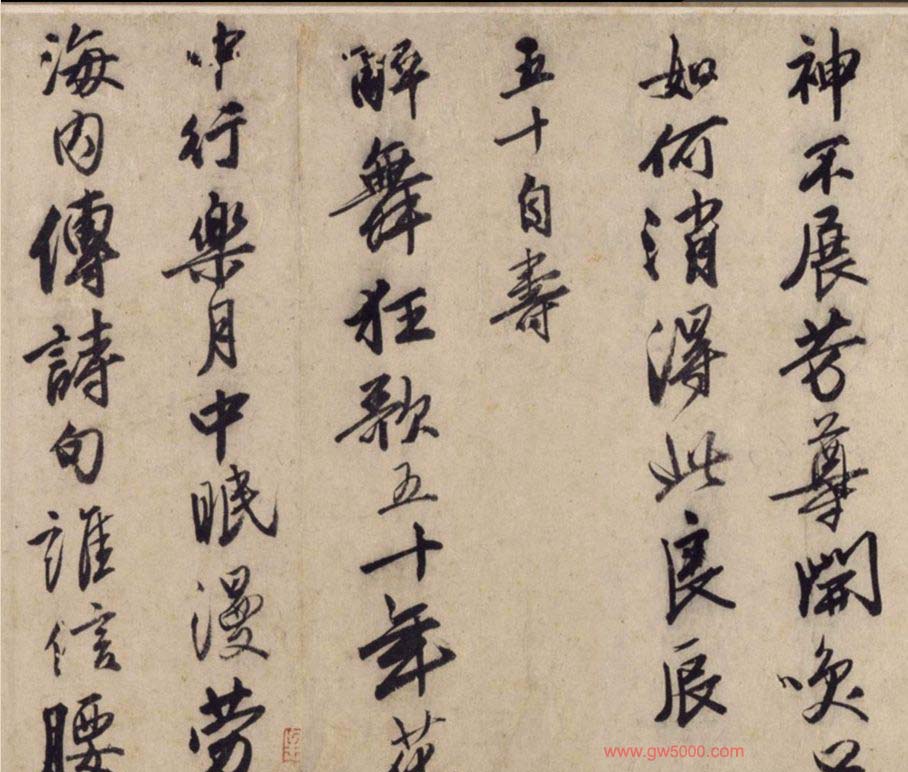 神不展芳尊開喚
如何消得此良辰
五十自壽
醉舞狂歌五十年花
中行樂月中眠漫勞
海內傳詩句誰信腰
www.gw5000.com